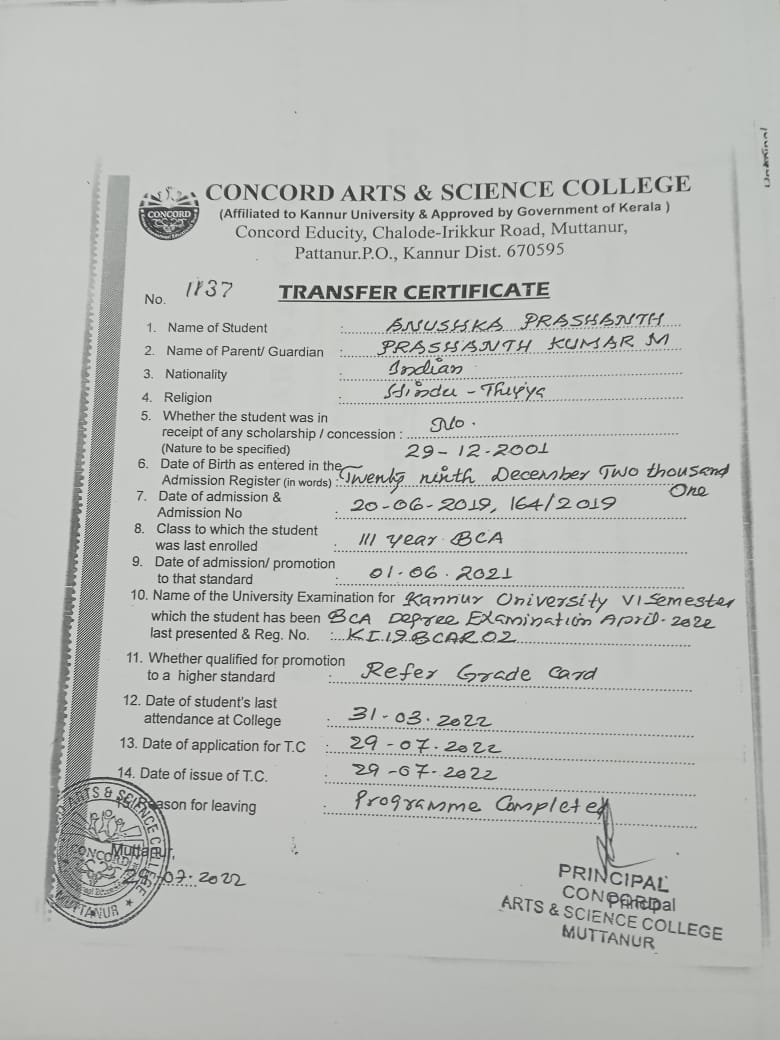 CONCORD ARTS & SCIENCE COLLEGE
(Affiliated to Kannur University & Approved by Government of Kerala )
Concord Educity, Chalode-Irikkur Road, Muttanur,
Pattanur.P.O., Kannur Dist. 670595
CONCORD
No. 1137 TRANSFER CERTIFICATE
1. Name of Student : ANUSHKA PRASHANTH
2. Name of Parent/ Guardian : PRASHANTH KUMAR M
3. Nationality : Indian
4. Religion : Hindu - Thiyya
5. Whether the student was in
receipt of any scholarship / concession : No.
(Nature to be specified) 29-12-2001
6. Date of Birth as entered in the
Admission Register (in words) : Twenty ninth December Two thousand
One
7. Date of admission &
Admission No : 20-06-2019, 164/2019
8. Class to which the student
was last enrolled : III year BCA
9. Date of admission/ promotion
to that standard : 01.06.2021
10. Name of the University Examination for Kannur University VI Semester
which the student has been BCA Degree Examination April-2022
last presented & Reg. No. : KI19BCAR02
11. Whether qualified for promotion
to a higher standard : Refer Grade Card
12. Date of student's last
attendance at College : 31-03.2022
13. Date of application for T.C : 29-07.2022
14. Date of issue of T.C. : 29-07.2022
Reason for leaving : Programme Completed
ARTS & SCIENCE COLLEGE
CONCORD
MUTTANUR ★
Muttanur,
29.07.2022
PRINCIPAL
CONCORD
Principal
ARTS & SCIENCE COLLEGE
MUTTANUR